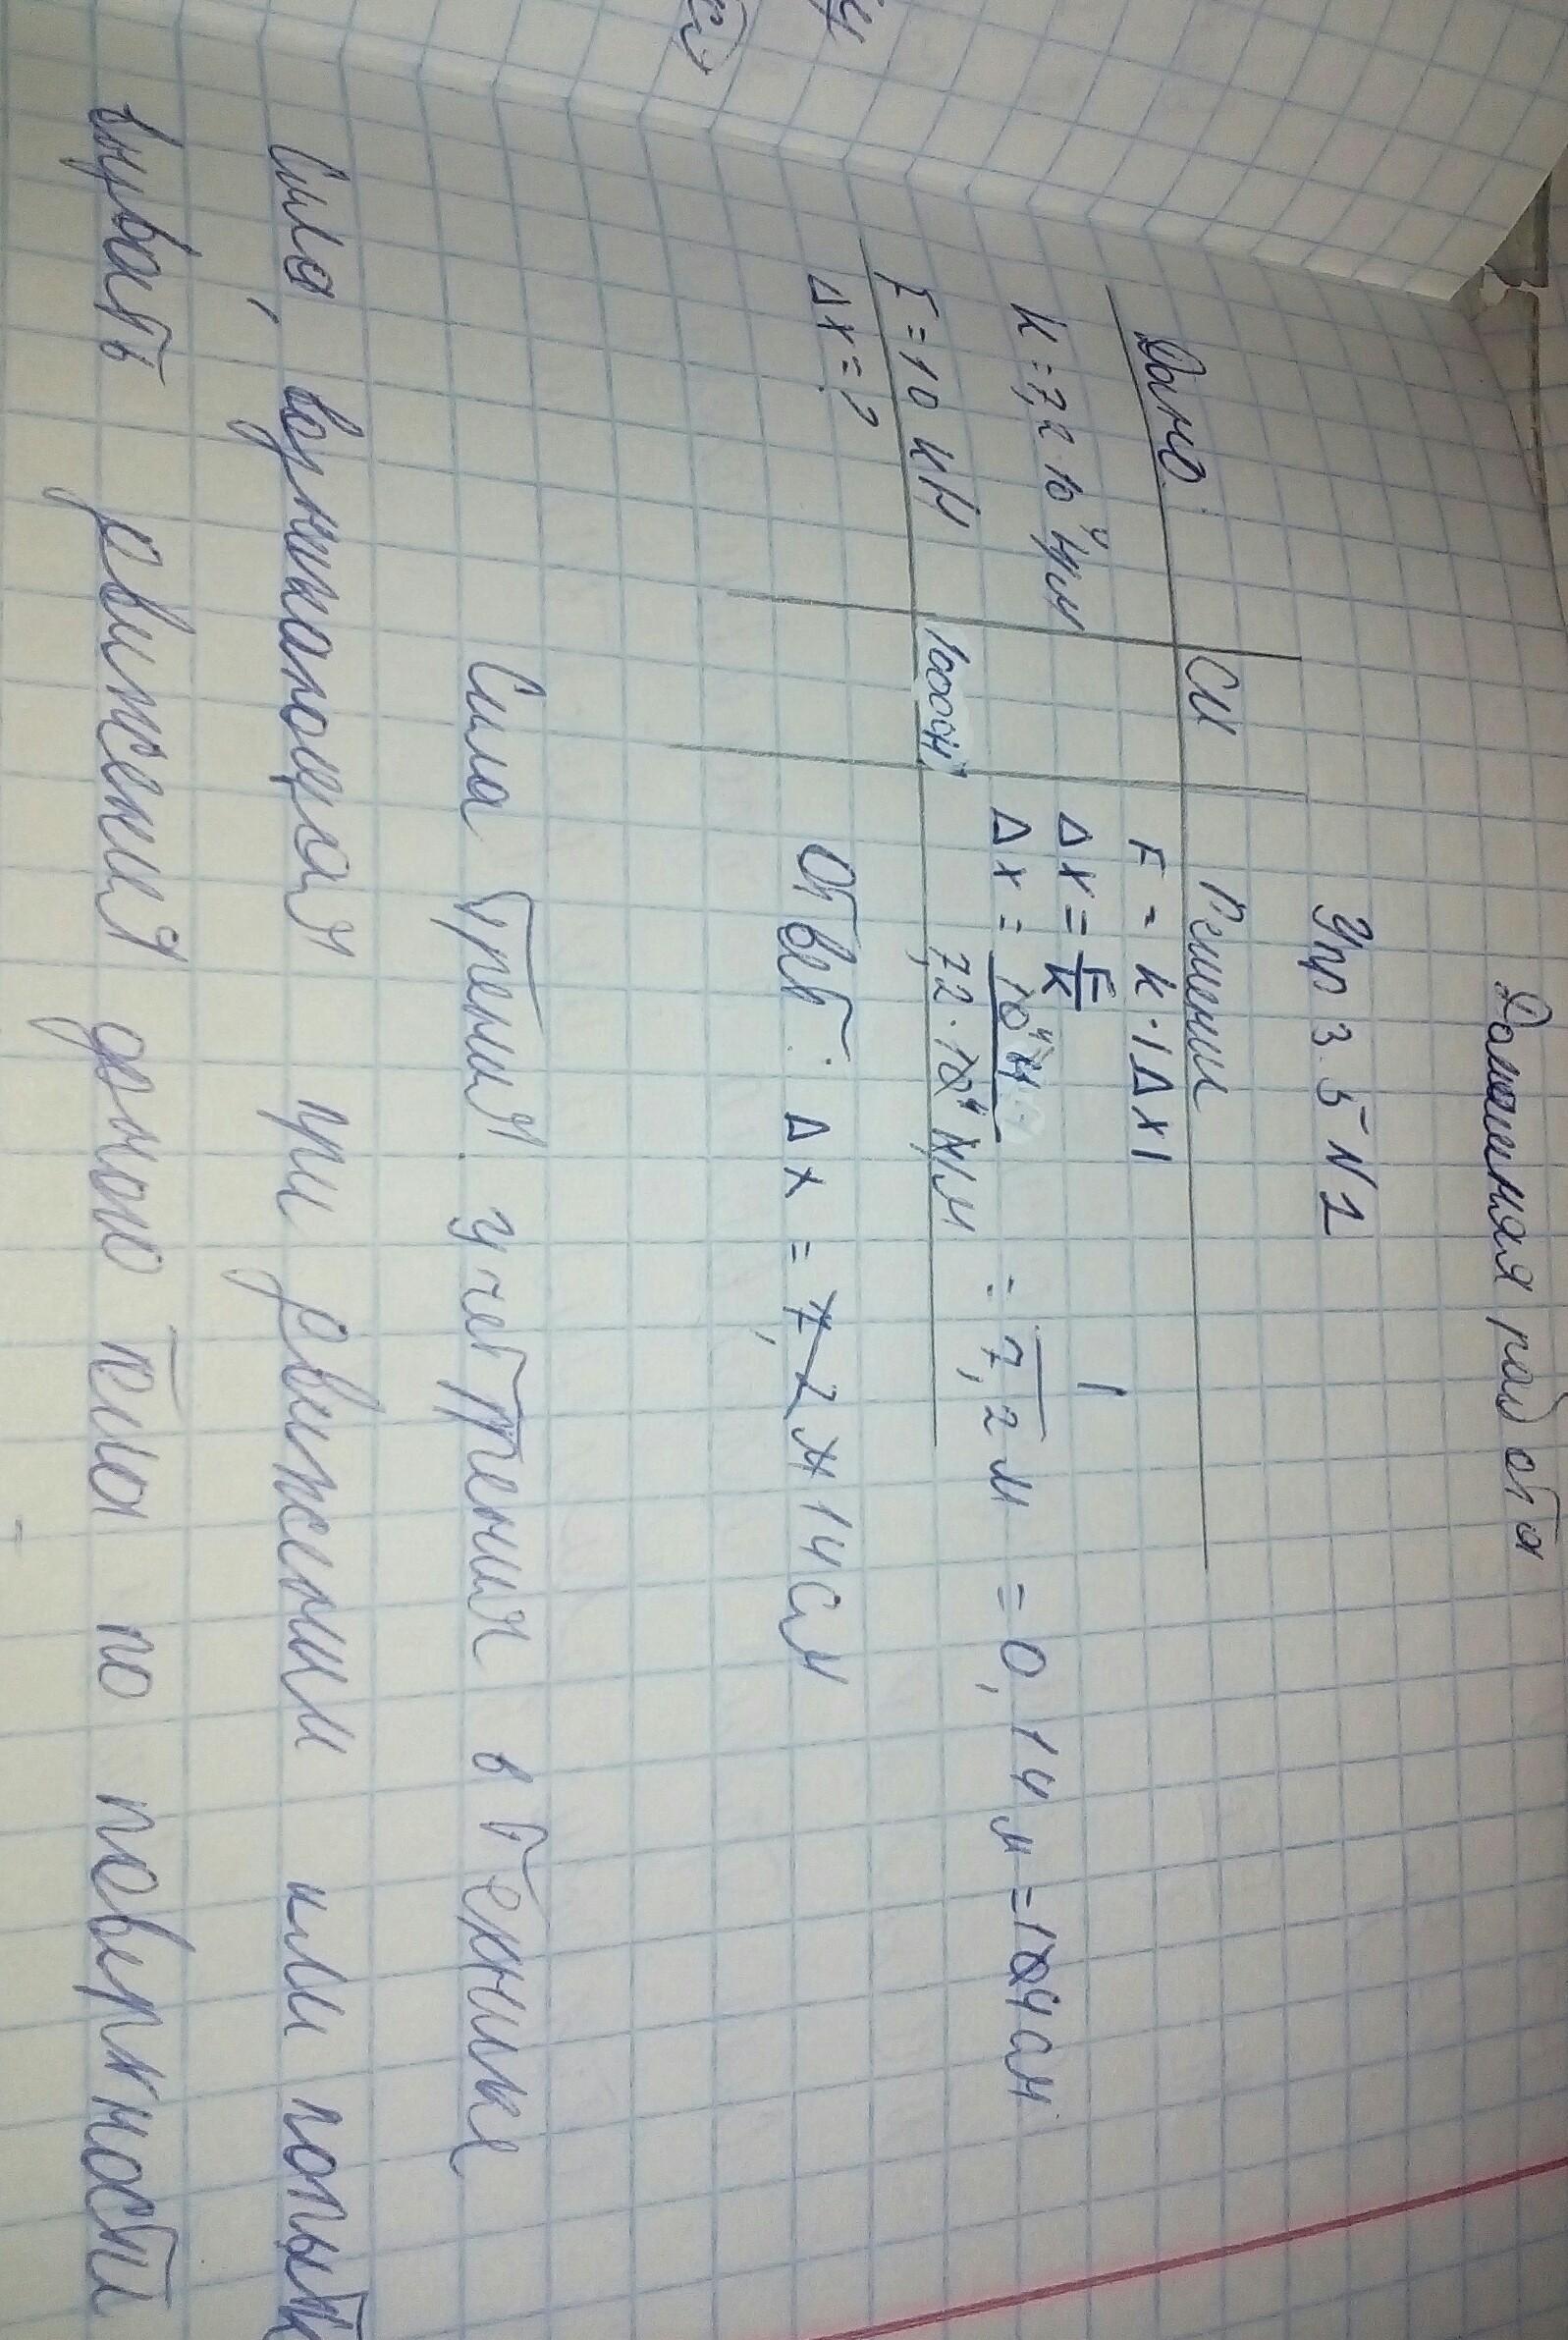 Домашняя работа
Упр 3.5 N1
Дано: СИ Решение
k = 7,2 · 10⁴ Н/м F = k · |Δx|
F = 10 кН 10000Н Δx = F/k
Δx = ? Δx = 10⁴ Н / 7,2 · 10⁴ Н/м = 1 / 7,2 м = 0,14 м = 14 см
Ответ: Δx = 14 см
Сила трения. учет трения в технике
Сила, возникающая при движении или попытк
вызвать движения доного тела по поверхности